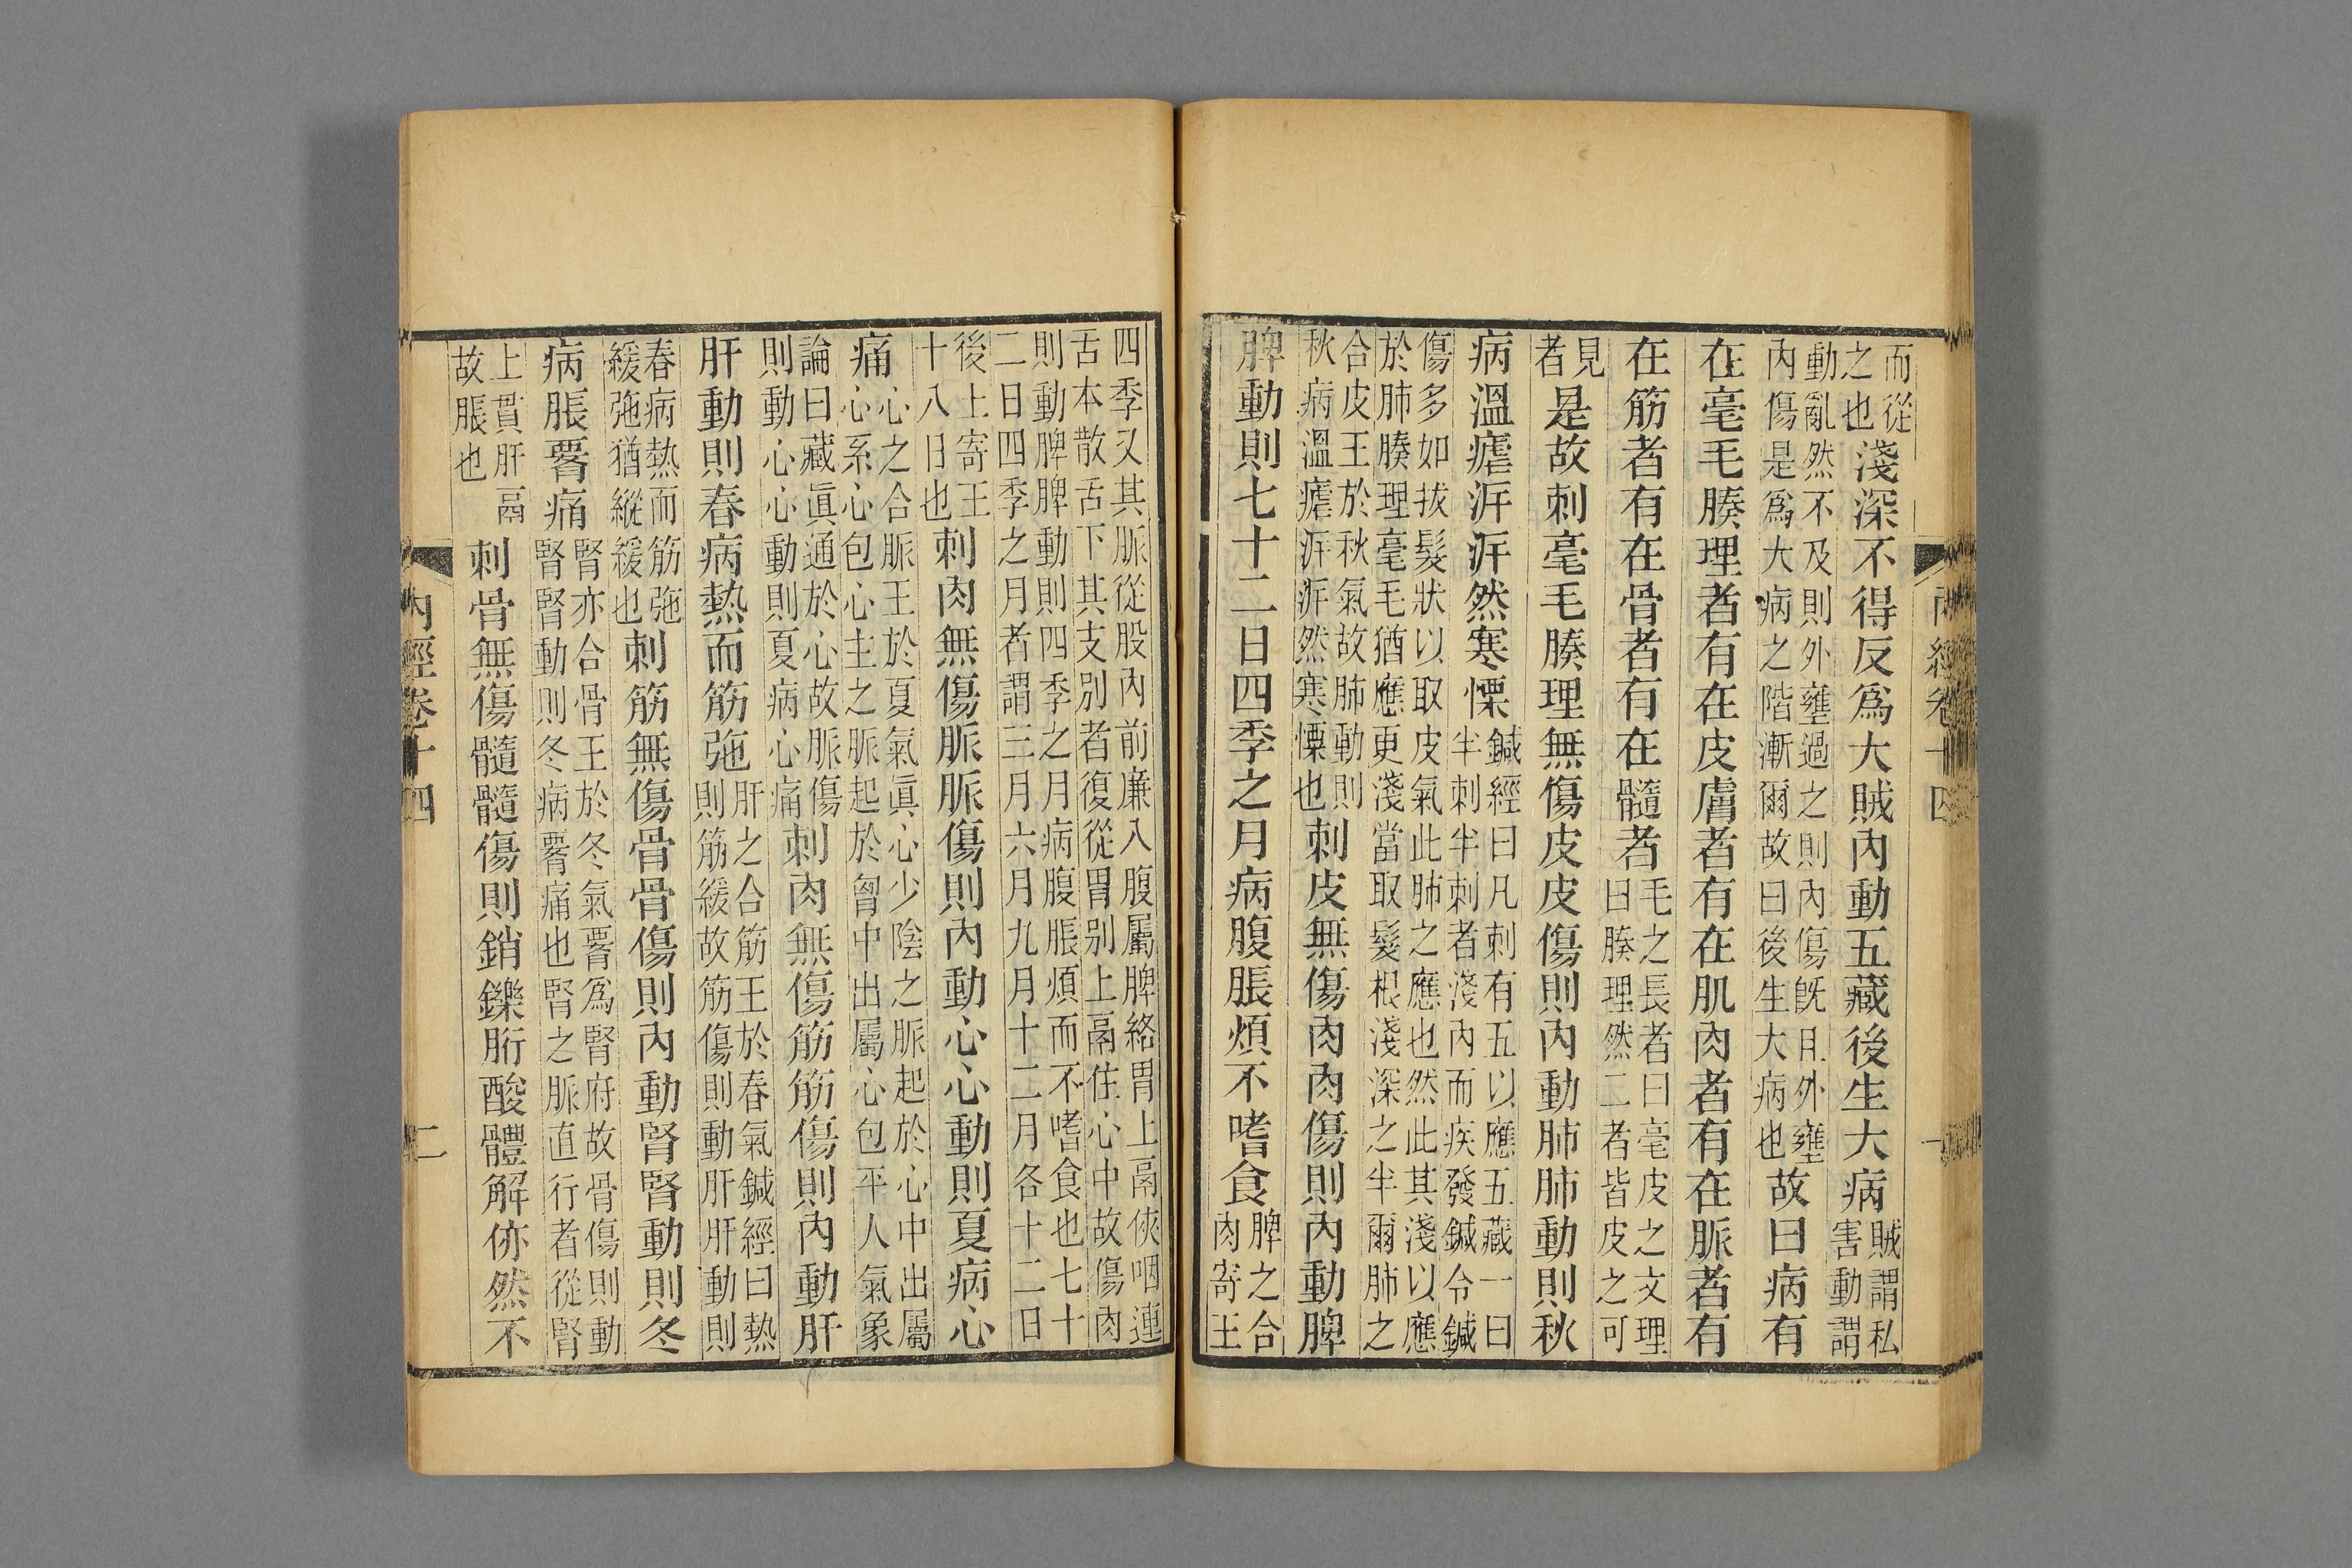 而從
之也
淺深不得反爲大賊內動五藏後生大病
賊謂私
害動謂
動亂然不及則外壅過之則內傷旣且外壅
內傷是爲大病之階漸爾故曰後生大病也
故曰病有
在毫毛腠理者有在皮膚者有在肌肉者有在脈者有
在筋者有在骨者有在髓者
毛之長者曰毫皮之文理
曰腠理然二者皆皮之可
見
者
是故刺毫毛腠理無傷皮皮傷則內動肺肺動則秋
病溫瘧泝泝然寒慄
鍼經曰凡刺有五以應五藏一曰
半刺半刺者淺內而疾發鍼令鍼
傷多如拔髮狀以取皮氣此肺之應也然此其淺以應
於肺腠理毫毛猶應更淺當取髮根淺深之半爾肺之
合皮王於秋氣故肺動則
秋病溫瘧泝泝然寒慄也
刺皮無傷肉肉傷則內動脾
脾動則七十二日四季之月病腹脹煩不嗜食
脾之合
肉寄王
四季又其脈從股內前廉入腹屬脾絡胃上鬲俠咽連
舌本散舌下其支別者復從胃別上鬲住心中故傷肉
則動脾脾動則四季之月病腹脹煩而不嗜食也七十
二日四季之月者謂三月六月九月十二月各十二日
後土寄王
十八日也
刺肉無傷脈脈傷則內動心心動則夏病心
痛
心之合脈王於夏氣眞心少陰之脈起於心中出屬
心系心包心主之脈起於胷中出屬心包平人氣象
論曰藏眞通於心故脈傷
則動心心動則夏病心痛
刺肉無傷筋筋傷則內動肝
肝動則春病熱而筋弛
肝之合筋王於春氣鍼經曰熱
則筋緩故筋傷則動肝肝動則
春病熱而筋弛
緩弛猶縱緩也
刺筋無傷骨骨傷則內動腎腎動則冬
病脹䐜痛
腎亦合骨王於冬氣䐜爲腎府故骨傷則動
腎腎動則冬病䐜痛也腎之脈直行者從腎
上貫肝鬲
故脹也
刺骨無傷髓髓傷則銷鑠胻酸體解㑊然不
內經卷十四
二